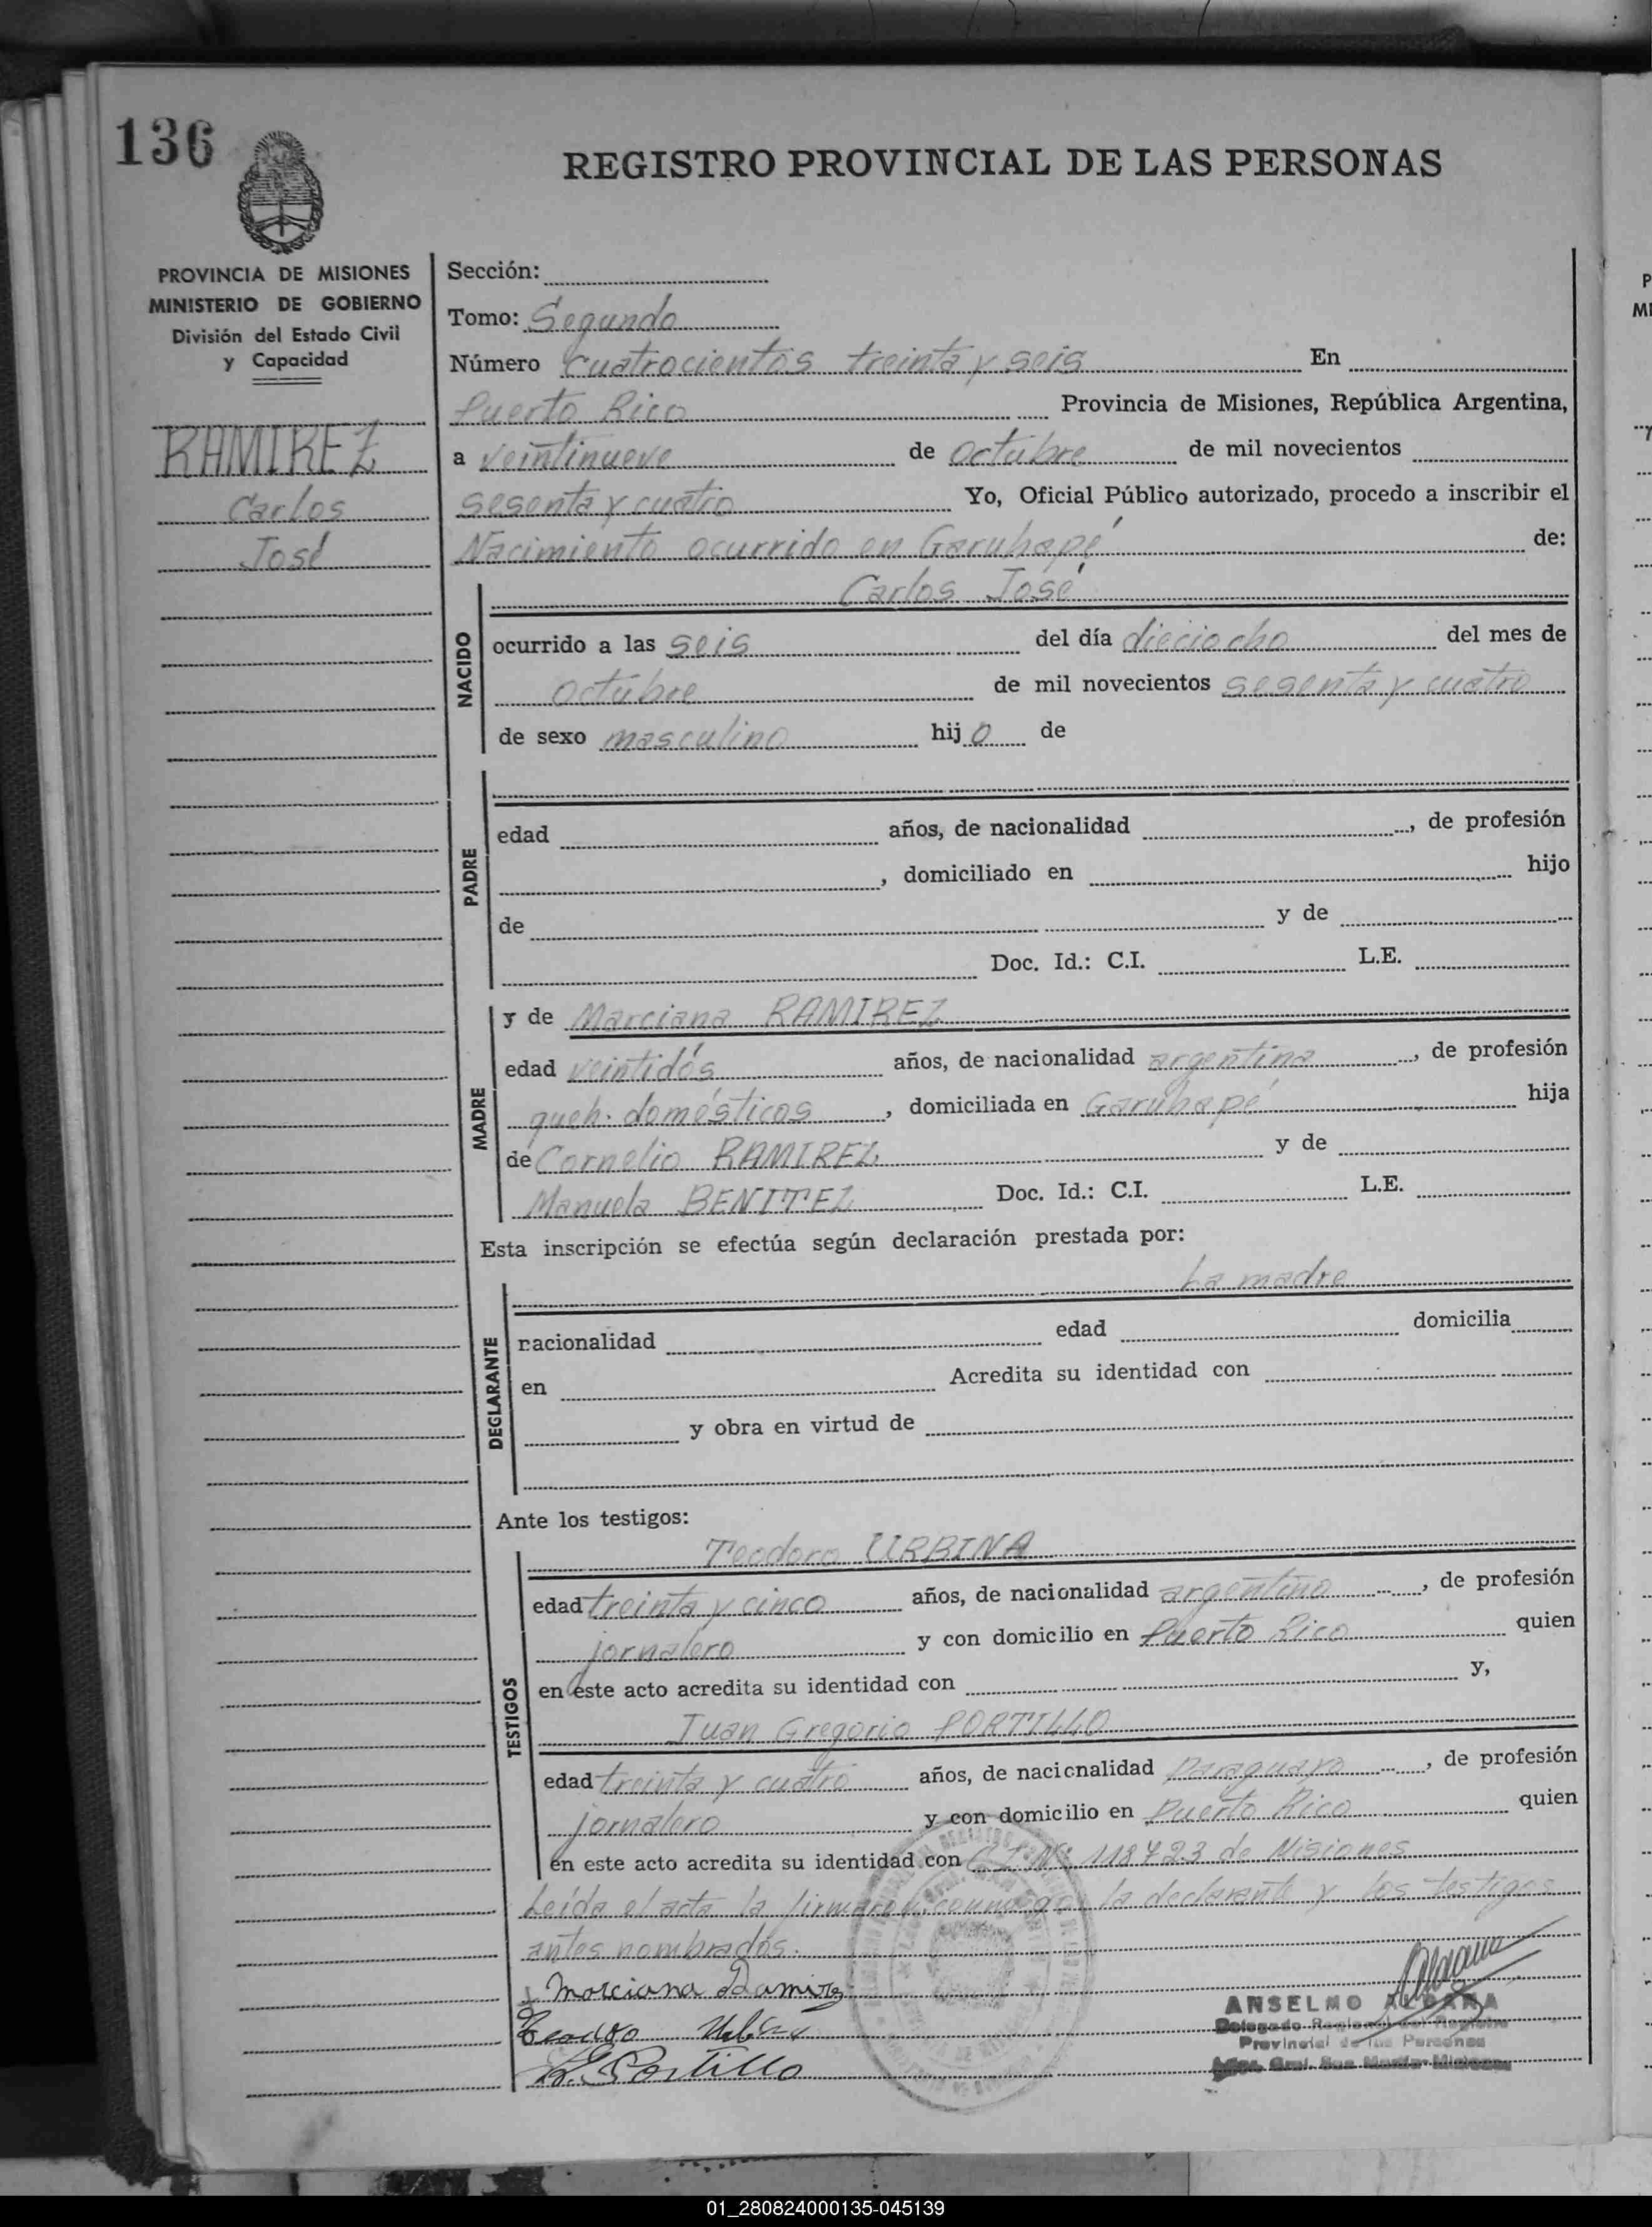 136
REGISTRO PROVINCIAL DE LAS PERSONAS
PROVINCIA DE MISIONES
MINISTERIO DE GOBIERNO
División del Estado Civil
y Capacidad
RAMIREZ
Carlos
José
Sección:
Tomo: Segundo
Número cuatrocientos treinta y seis En
Puerto Rico Provincia de Misiones, República Argentina,
a veintinueve de octubre de mil novecientos
sesenta y cuatro Yo, Oficial Público autorizado, procedo a inscribir el
Nacimiento ocurrido en Garuhapé de:
Carlos José
NACIDO
ocurrido a las seis del día dieciocho del mes de
octubre de mil novecientos sesenta y cuatro
de sexo masculino hijo de
PADRE
edad años, de nacionalidad , de profesión
, domiciliado en hijo
de y de
Doc. Id.: C.I. L.E.
MADRE
y de Marciana RAMIREZ
edad veintidós años, de nacionalidad argentina , de profesión
queh. domésticos , domiciliada en Garuhapé hija
de Cornelio RAMIREZ y de
Manuela BENITEZ Doc. Id.: C.I. L.E.
Esta inscripción se efectúa según declaración prestada por:
La madre
DECLARANTE
nacionalidad edad domicilia
en Acredita su identidad con
y obra en virtud de
Ante los testigos:
TESTIGOS
Teodoro URBINA
edad treinta y cinco años, de nacionalidad argentino , de profesión
jornalero y con domicilio en Puerto Rico quien
en este acto acredita su identidad con y,
Juan Gregorio PORTILLO
edad treinta y cuatro años, de nacionalidad paraguayo , de profesión
jornalero y con domicilio en Puerto Rico quien
en este acto acredita su identidad con C.I. Nº 118723 de Misiones
Leída el acta la firmaron conmigo la declarante y los testigos
antes nombrados.
Marciana Ramirez
Teodoro Urbina
J. G. Portillo
ANSELMO ALDANA
Delegado Regional del Registro
Provincial de las Personas
01_280824000135-045139